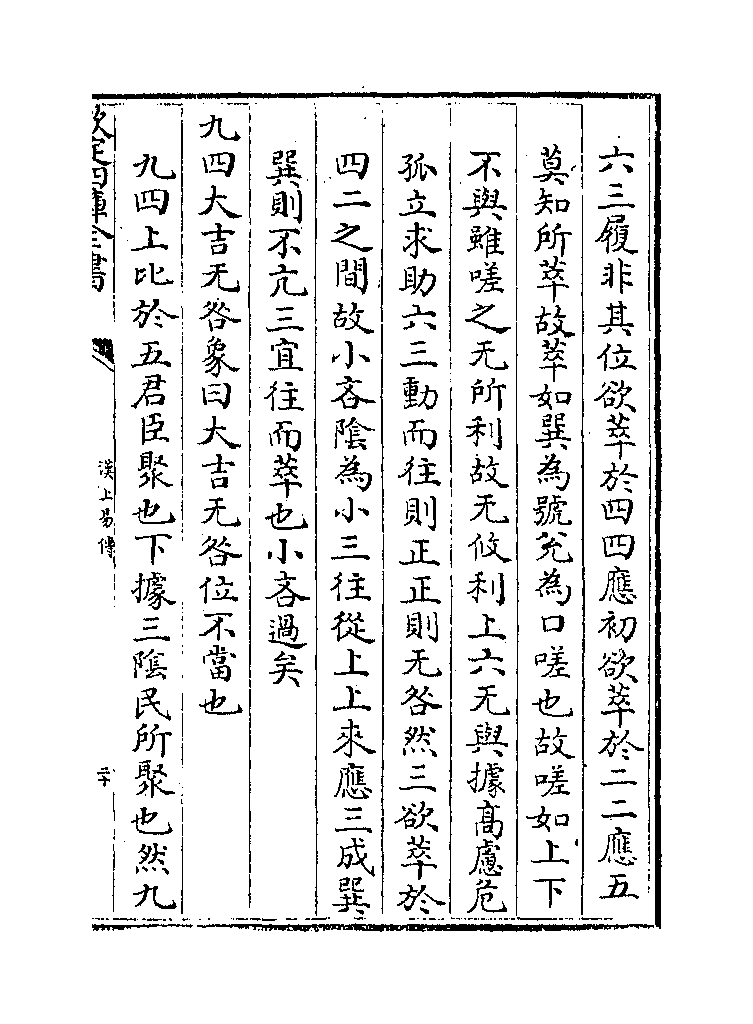 六三履非其位欲萃於四四應初欲萃於二二應五
莫知所萃故萃如巽為號兊為口嗟也故嗟如上下
不與雖嗟之无所利故无攸利上六无與據髙慮危
孤立求助六三動而往則正正則无咎然三欲萃於
四二之間故小吝陰為小三往從上上來應三成巽
巽則不亢三宜往而萃也小吝過矣
九四大吉无咎象曰大吉无咎位不當也
九四上比於五君臣聚也下據三隂民所聚也然九
欽定四庫全書
漢上易傳
二十